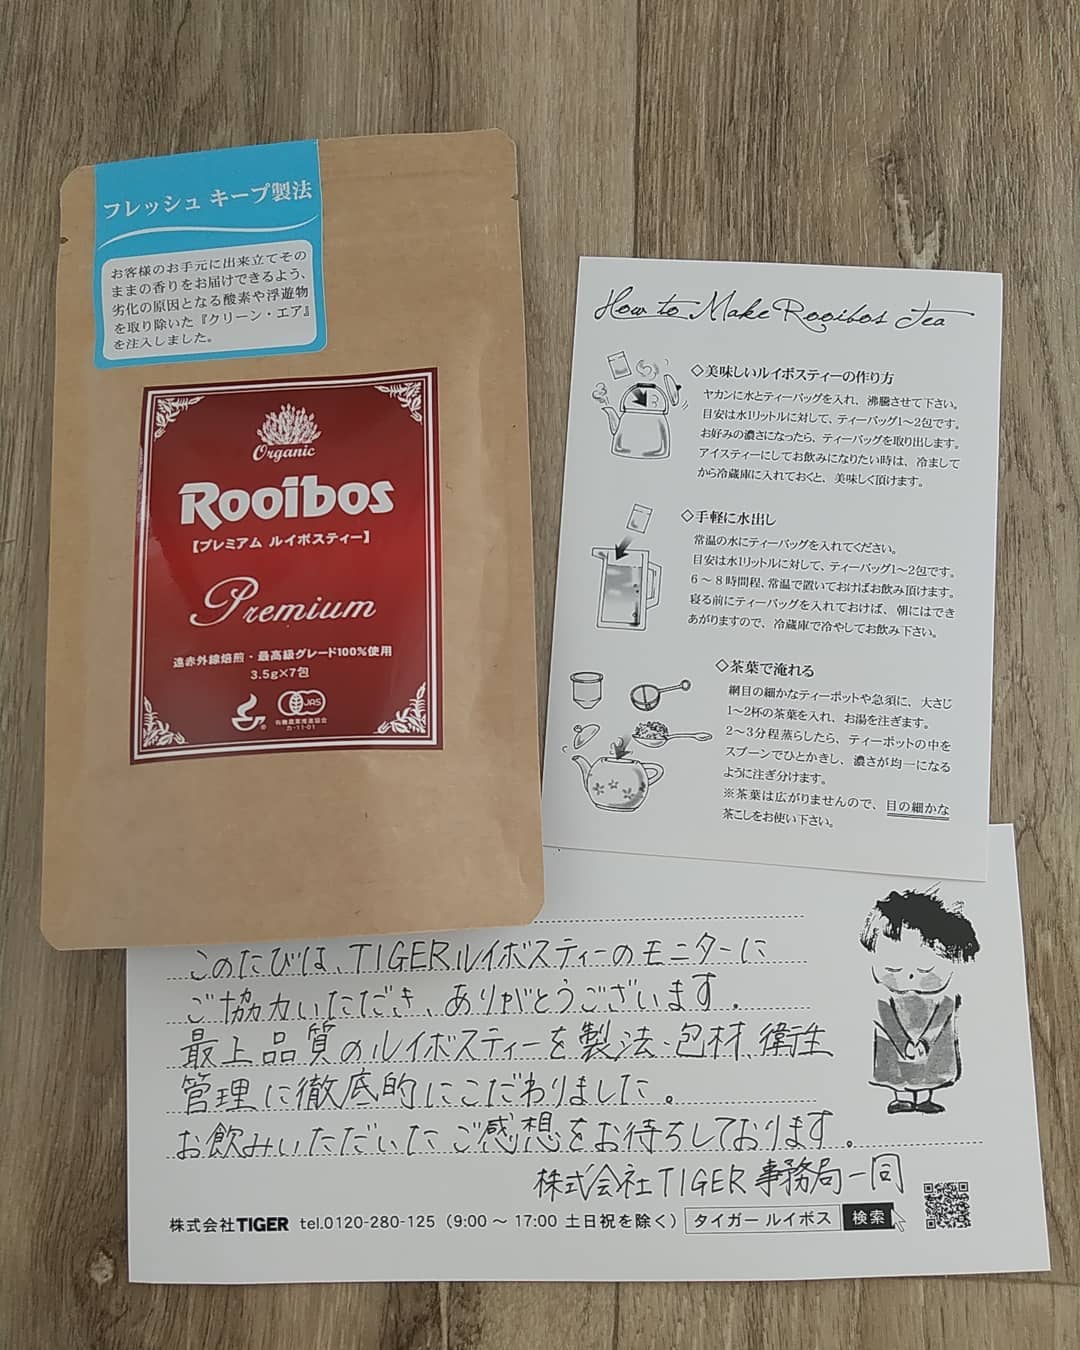 フレッシュ キープ製法
お客様のお手元に出来立てその
ままの香りをお届けできるよう、
劣化の原因となる酸素や浮遊物
を取り除いた『クリーン・エア』
を注入しました。
Organic
Rooibos
【プレミアム ルイボスティー】
Premium
遠赤外線焙煎・最高級グレード100%使用
3.5g×7包
JAS
有機農業推進協会
カ-11-01
How to Make Rooibos Tea
◇美味しいルイボスティーの作り方
ヤカンに水とティーバッグを入れ、沸騰させて下さい。
目安は水1リットルに対して、ティーバッグ1〜2包です。
お好みの濃さになったら、ティーバッグを取り出します。
アイスティーにしてお飲みになりたい時は、冷まして
から冷蔵庫に入れておくと、美味しく頂けます。
◇手軽に水出し
常温の水にティーバッグを入れてください。
目安は水1リットルに対して、ティーバッグ1〜2包です。
6〜8時間程、常温で置いておけばお飲み頂けます。
寝る前にティーバッグを入れておけば、朝にはでき
あがりますので、冷蔵庫で冷やしてお飲み下さい。
◇茶葉で淹れる
網目の細かなティーポットや急須に、大さじ
1〜2杯の茶葉を入れ、お湯を注ぎます。
2〜3分程蒸らしたら、ティーポットの中を
スプーンでひとかきし、濃さが均一になる
ように注ぎ分けます。
※茶葉は広がりませんので、目の細かな
茶こしをお使い下さい。
このたびは、TIGERルイボスティーのモニターに
ご協力いただき、ありがとうございます。
最上品質のルイボスティーを製法・包材、衛生
管理に徹底的にこだわりました。
お飲みいただいたご感想をお待ちしております。
株式会社TIGER 事務局一同
株式会社TIGER tel.0120-280-125（9:00〜17:00 土日祝を除く） タイガー ルイボス 検索